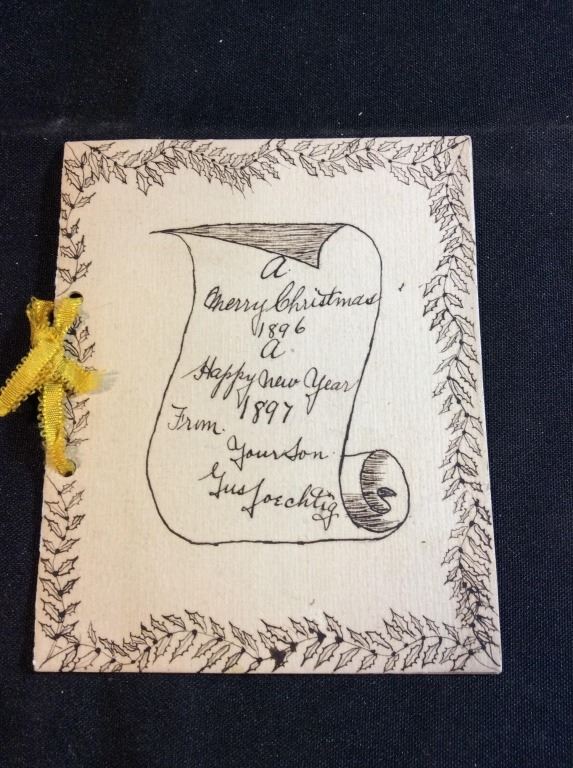 A
Merry Christmas
1896
A
Happy New Year
1897
From
Your Son
Gus Joechtig